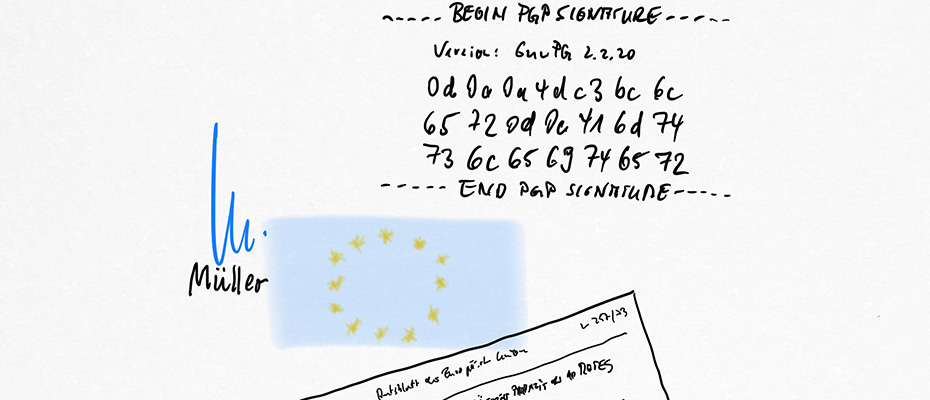 ----- BEGIN PGP SIGNATURE -----
Version: GnuPG 2.2.20
0d 0a 0a 4d c3 bc 6c
65 72 0d 0a 41 6d 74
73 6c 65 69 74 65 72
----- END PGP SIGNATURE -----
Müller
L 257/73
Amtsblatt der Europäischen Union